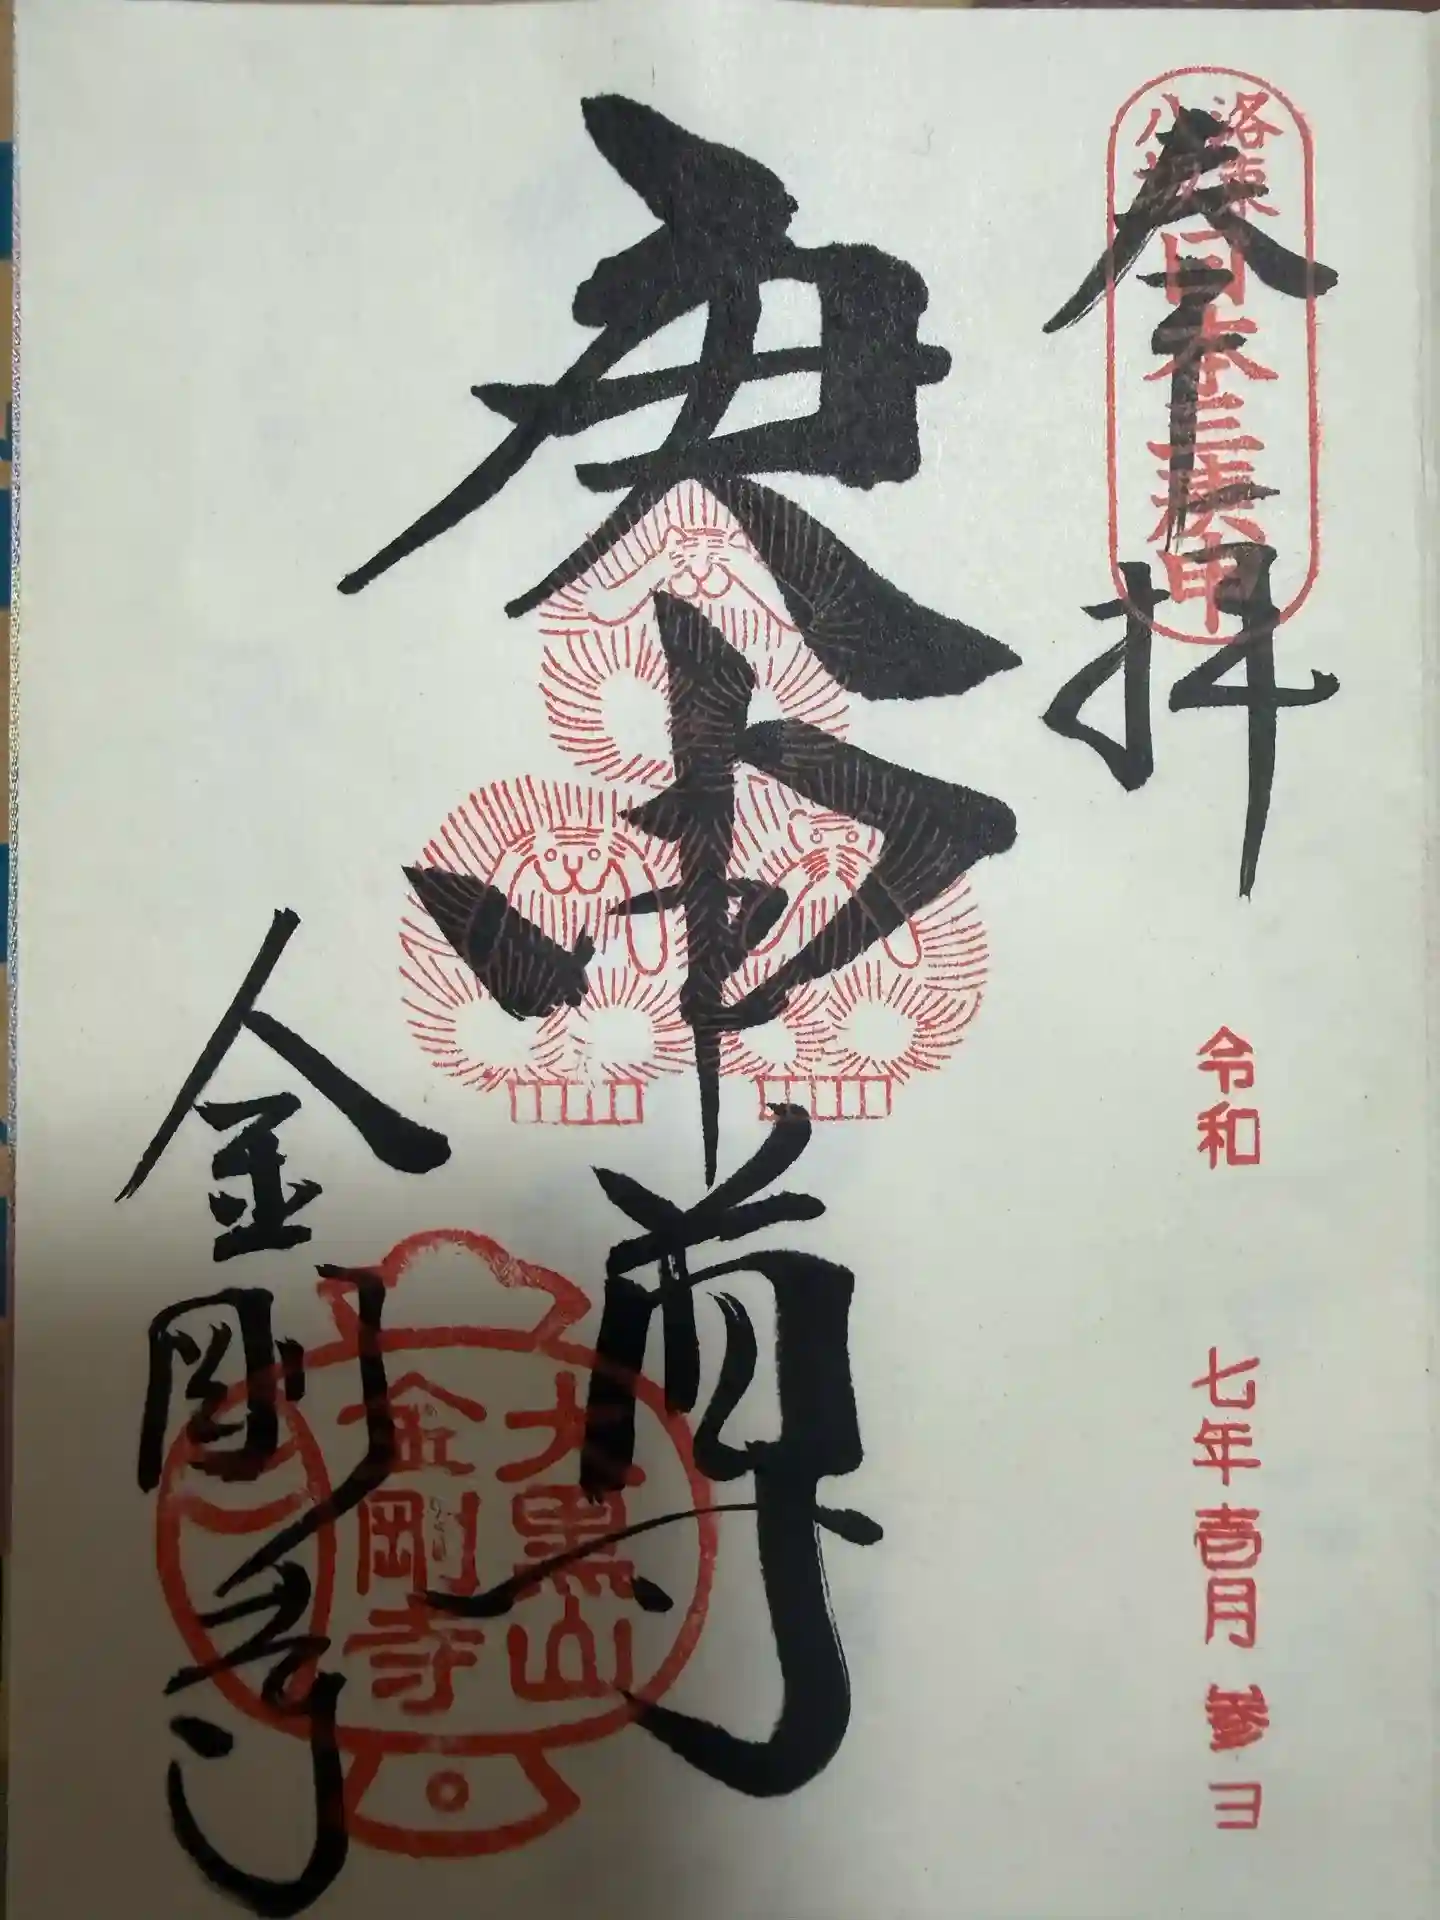 奉拝
洛東
八坂
日本三庚申
令和 七年壱月参日
庚申尊
大黒山
金剛寺
金剛寺